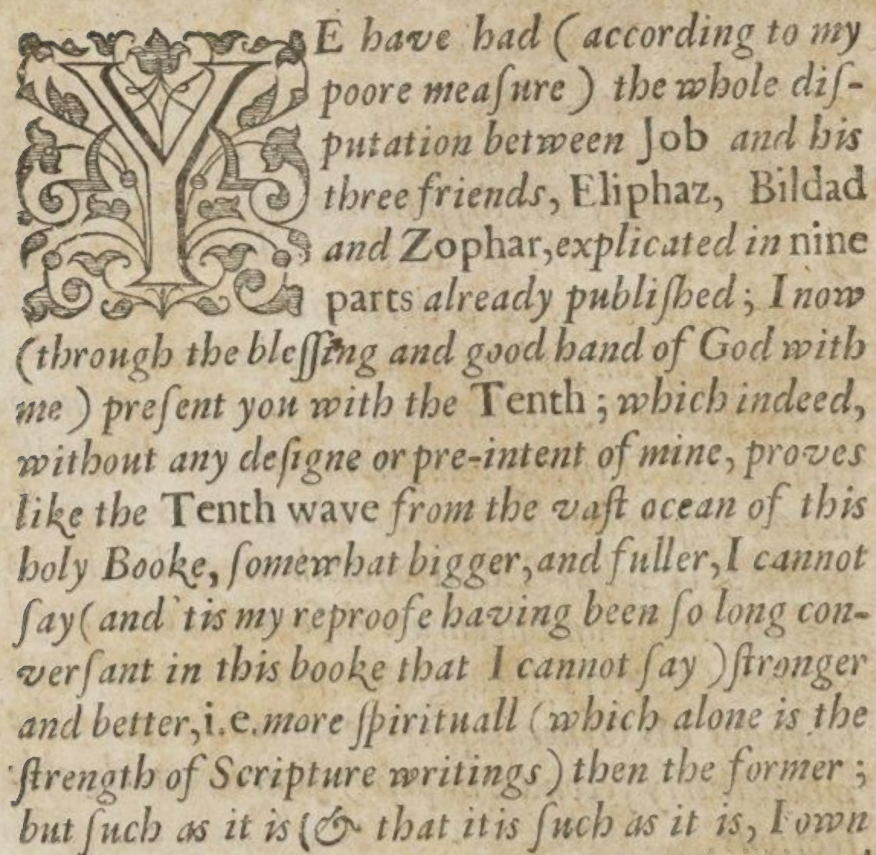 YE have had (according to my
poore meaſure) the whole diſ-
putation between Job and his
three friends, Eliphaz, Bildad
and Zophar, explicated in nine
parts already publiſhed; I now
(through the bleſſing and good hand of God with
me) preſent you with the Tenth; which indeed,
without any deſigne or pre-intent of mine, proves
like the Tenth wave from the vaſt ocean of this
holy Booke, ſomewhat bigger, and fuller, I cannot
ſay (and 'tis my reproofe having been ſo long con-
verſant in this booke that I cannot ſay) ſtronger
and better, i.e. more ſpirituall (which alone is the
ſtrength of Scripture writings) then the former;
but ſuch as it is (& that it is ſuch as it is, I own